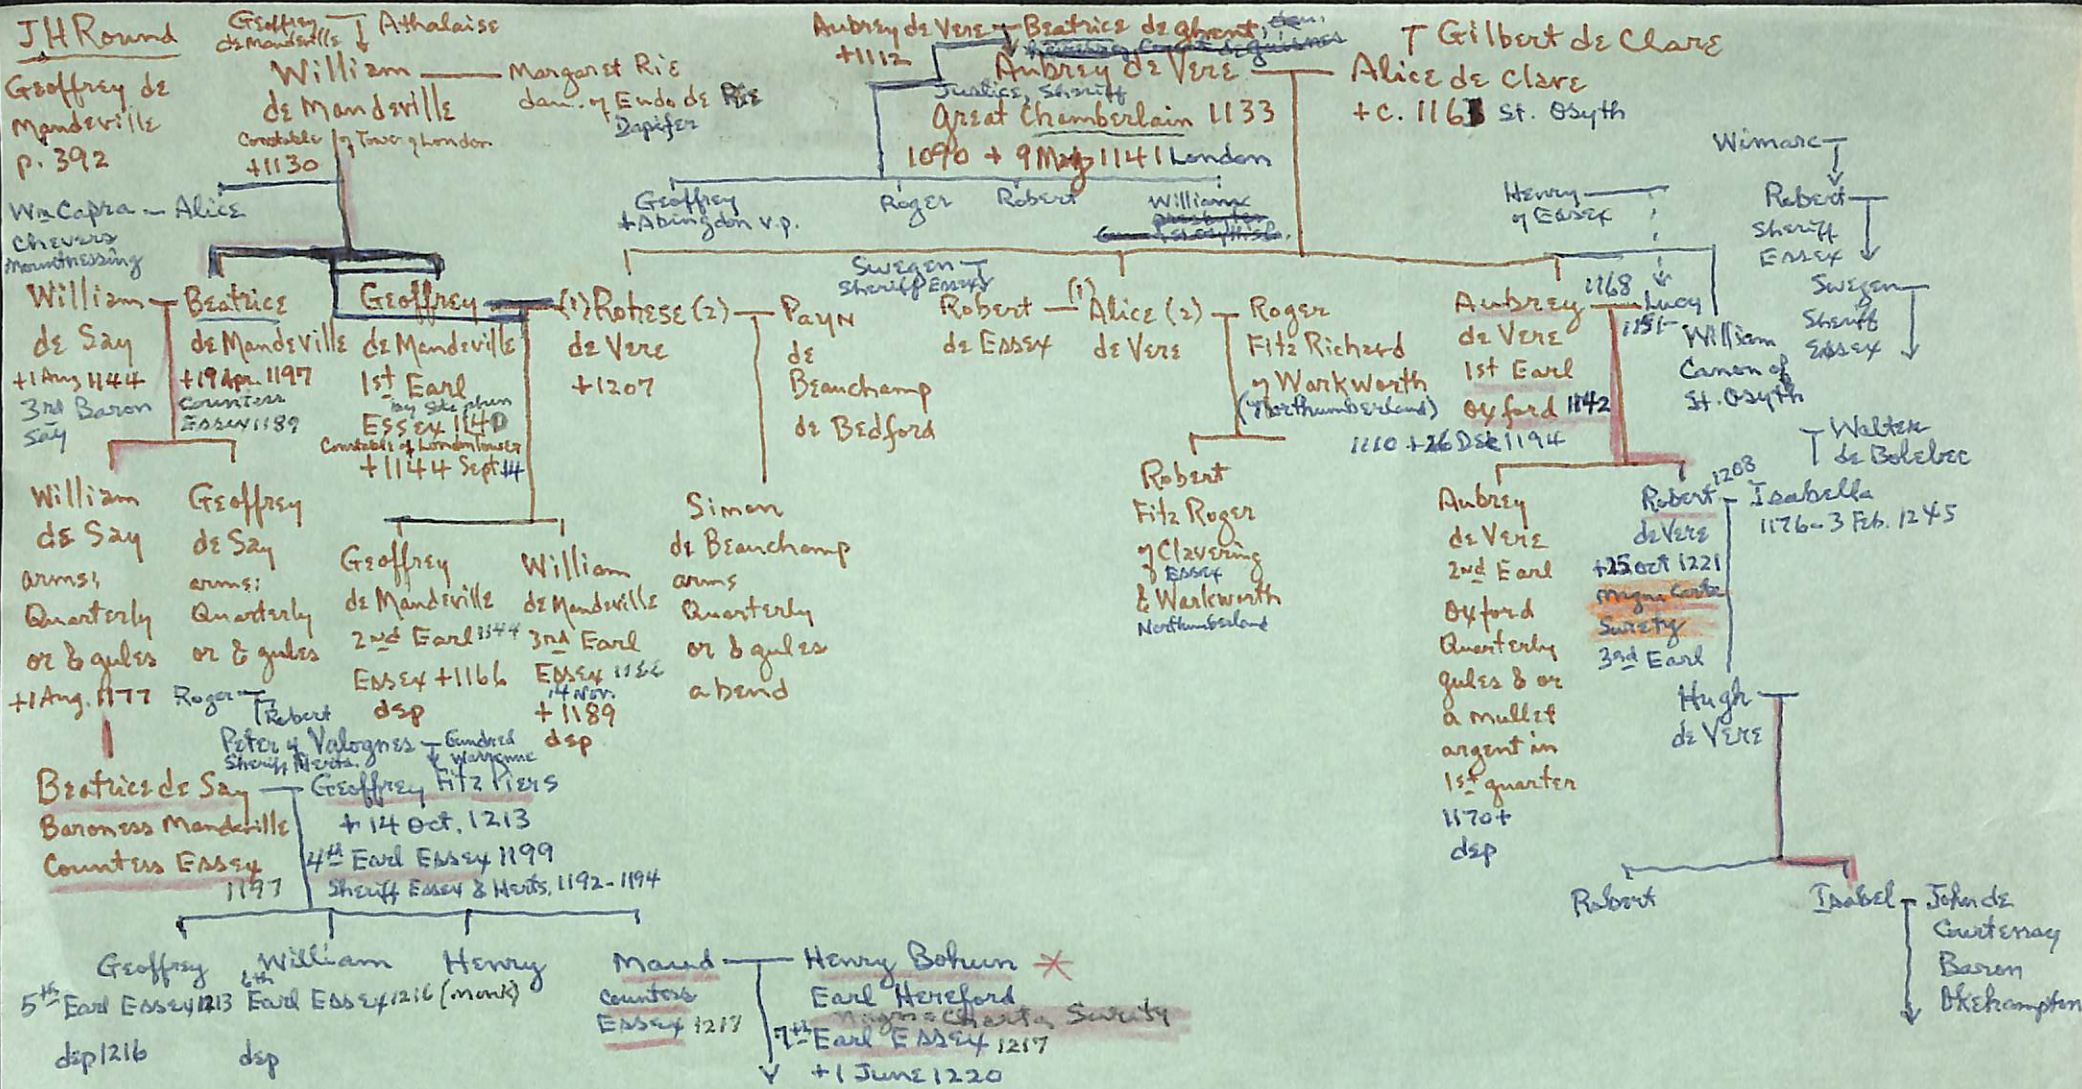 JH Round
Geoffrey de
Mandeville
p. 392
Geoffrey
de Mandeville
Athalaise
William
de Mandeville
Constable of Tower of London
+1130
Margaret Rie
dau. of Eudo de Rie
Dapifer
Aubrey de Vere
+1112
Beatrice de Ghent,
Aubrey de Vere
Justice, Sheriff
Great Chamberlain 1133
1090 + 9 May 1141 London
Gilbert de Clare
Alice de Clare
+ c. 1163 St. Osyth
Wm Capra - Alice
Chevers
Mountnessing
Geoffrey
+Abingdon v.p.
Roger
Robert
William
Henry
of Essex
Wimarc
Robert
Sheriff
Essex
Swegen
Sheriff
Essex
William
de Say
+1 Aug 1144
3rd Baron
Say
Beatrice
de Mandeville
+19 Apr. 1197
Countess
Essex 1189
Geoffrey
de Mandeville
1st Earl
by Stephen
Essex 1140
Constable of London Tower
+1144 Sept 14
(1) Rohese (2)
de Vere
+1207
Payn
de
Beauchamp
de Bedford
Swegen
Sheriff Essex
Robert
de Essex
(1) Alice (2)
de Vere
Roger
Fitz Richard
of Warkworth
(Northumberland)
Aubrey
de Vere
1st Earl
Oxford 1142
1110 +26 Dec 1194
1168
Lucy
1151-
William
Canon of
St. Osyth
Walter
de Bolebec
William
de Say
arms:
Quarterly
or & gules
+1 Aug. 1177
Geoffrey
de Say
arms:
Quarterly
or & gules
Geoffrey
de Mandeville
2nd Earl 1144
Essex +1166
dsp
William
de Mandeville
3rd Earl
Essex 1166
14 Nov.
+1189
dsp
Simon
de Beauchamp
arms
Quarterly
or & gules
a bend
Robert
Fitz Roger
of Clavering
Essex
& Warkworth
Northumberland
Aubrey
de Vere
2nd Earl
Oxford
Quarterly
gules & or
a mullet
argent in
1st quarter
1170+
dsp
Robert
de Vere
+25 Oct 1221
Magna Carta
Surety
3rd Earl
1208
Isabella
1176 - 3 Feb. 1245
Hugh
de Vere
Roger
Robert
Peter of Valognes
Sheriff Herts.
Gundred
Warrenne
Beatrice de Say
Baroness Mandeville
Countess Essex
1197
Geoffrey Fitz Piers
+ 14 Oct. 1213
4th Earl Essex 1199
Sheriff Essex & Herts. 1192-1194
Robert
Isabel
John de
Courtenay
Baron
Okehampton
Geoffrey
5th Earl Essex 1213
dsp 1216
William
6th
Earl Essex 1216
dsp
Henry
(monk)
Maud
Countess
Essex 1217
Henry Bohun
Earl Hereford
Magna Charta Surety
7th Earl Essex 1217
+1 June 1220